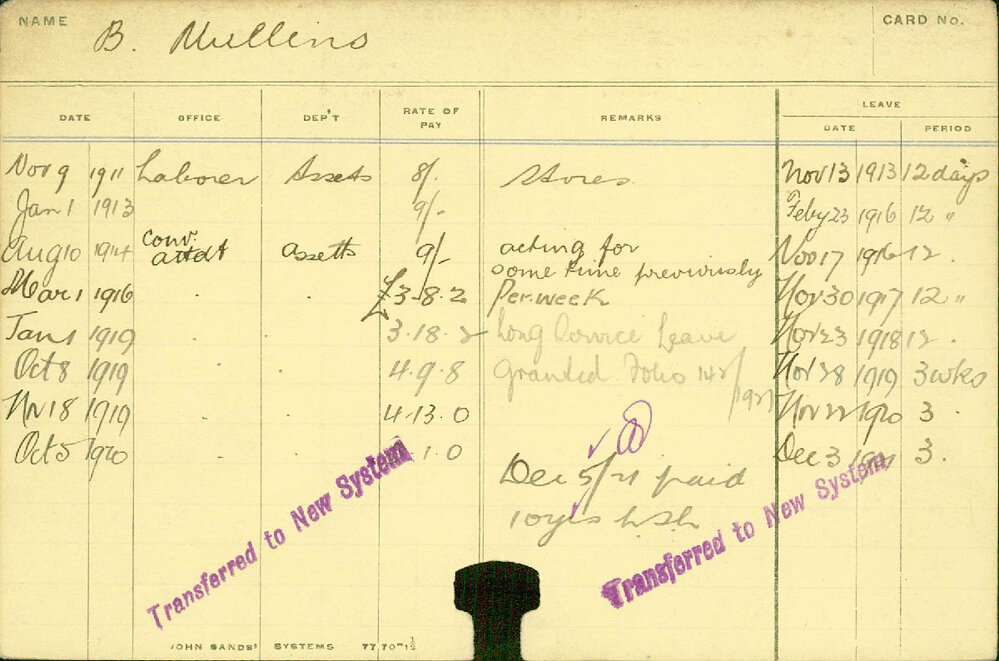 NAME B. Mullins CARD No.
LEAVE
DATE OFFICE DEP'T RATE OF PAY REMARKS DATE PERIOD
Nov 9 1911 Laborer Assets 8/. Stores Nov 13 1913 12 days
Jan 1 1913 9/- Feby 23 1916 12 "
Aug 10 1914 conv. attdt assetts 9/- acting for some time previously Nov 17 1916 12 .
Mar 1 1916 . . £3.8.2 Per week Nov 30 1917 12 "
Jan 1 1919 . . 3.18.2 Long Service Leave Nov 23 1918 12 .
Oct 8 1919 . . 4.9.8 Granted Folio 142/1921 Nov 28 1919 3 wks
Nv 18 1919 . . 4.13.0 Nov 22 1920 3 .
Oct 5 1920 . . 1.0 Dec 3 3 .
Dec 5/21 paid
10 yrs L.S.L.
Transferred to New System
Transferred to New System
JOHN SANDS' SYSTEMS